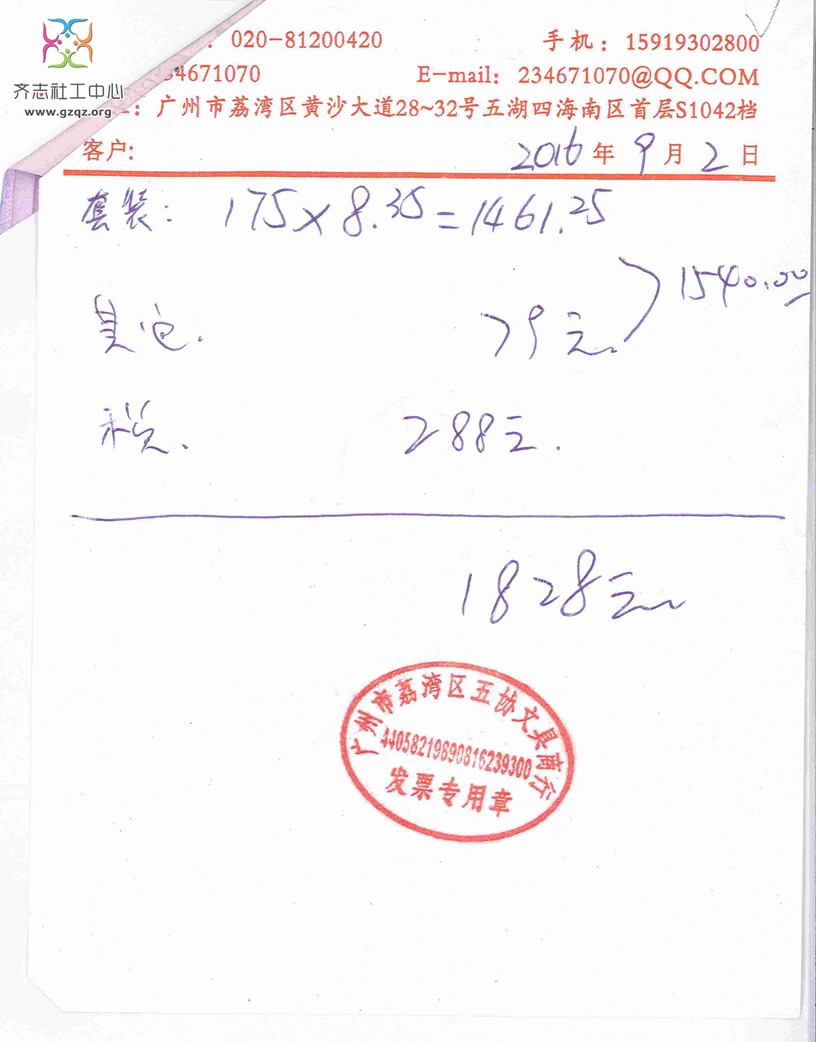 齐志社工中心
www.gzqz.org
: 020-81200420 手机: 15919302800
34671070 E-mail: 234671070@QQ.COM
: 广州市荔湾区黄沙大道28~32号五湖四海南区首层S1042档
客户: 2016年9月2日
套装: 175×8.35=1461.25
其他. 79元. 1540.00
税. 288元.
1828元
广州市荔湾区五协文具商行
44058219890816239300
发票专用章